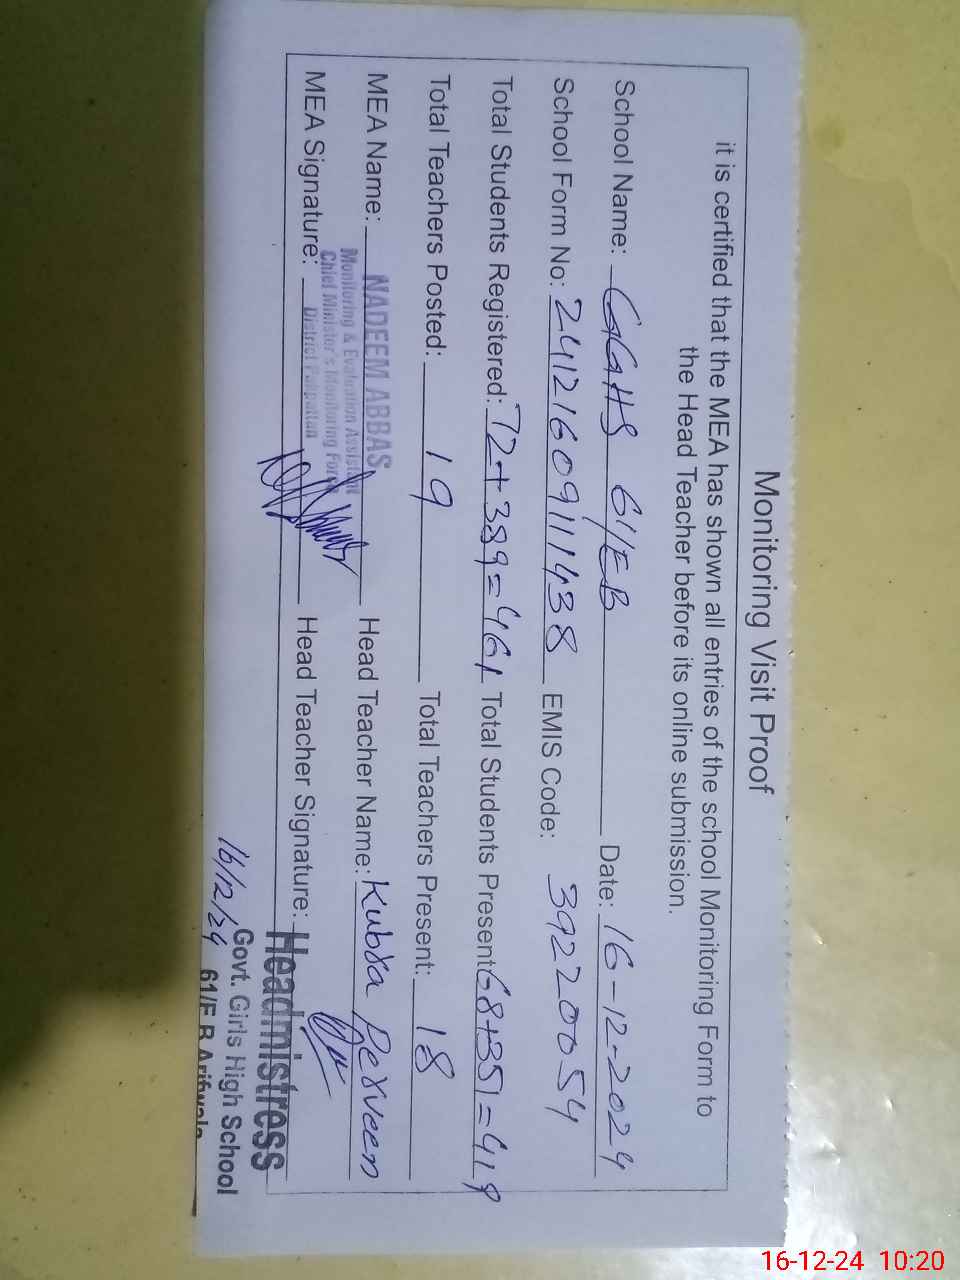 Monitoring Visit Proof
it is certified that the MEA has shown all entries of the school Monitoring Form to
the Head Teacher before its online submission.
School Name: GGHS 61/EB Date: 16-12-2024
School Form No: 241216091111438 EMIS Code: 39220054
Total Students Registered: 72+389=461 Total Students Present: 68+351=419
Total Teachers Posted: 19 Total Teachers Present: 18
MEA Name: NADEEM ABBAS Head Teacher Name: Kubra Perveen
Monitoring & Evaluation Assistant
Chief Minister's Monitoring Force
District Pakpattan
MEA Signature: Head Teacher Signature:
Headmistress
Govt. Girls High School
16/12/24 61/E.B Arifwala
16-12-24 10:20